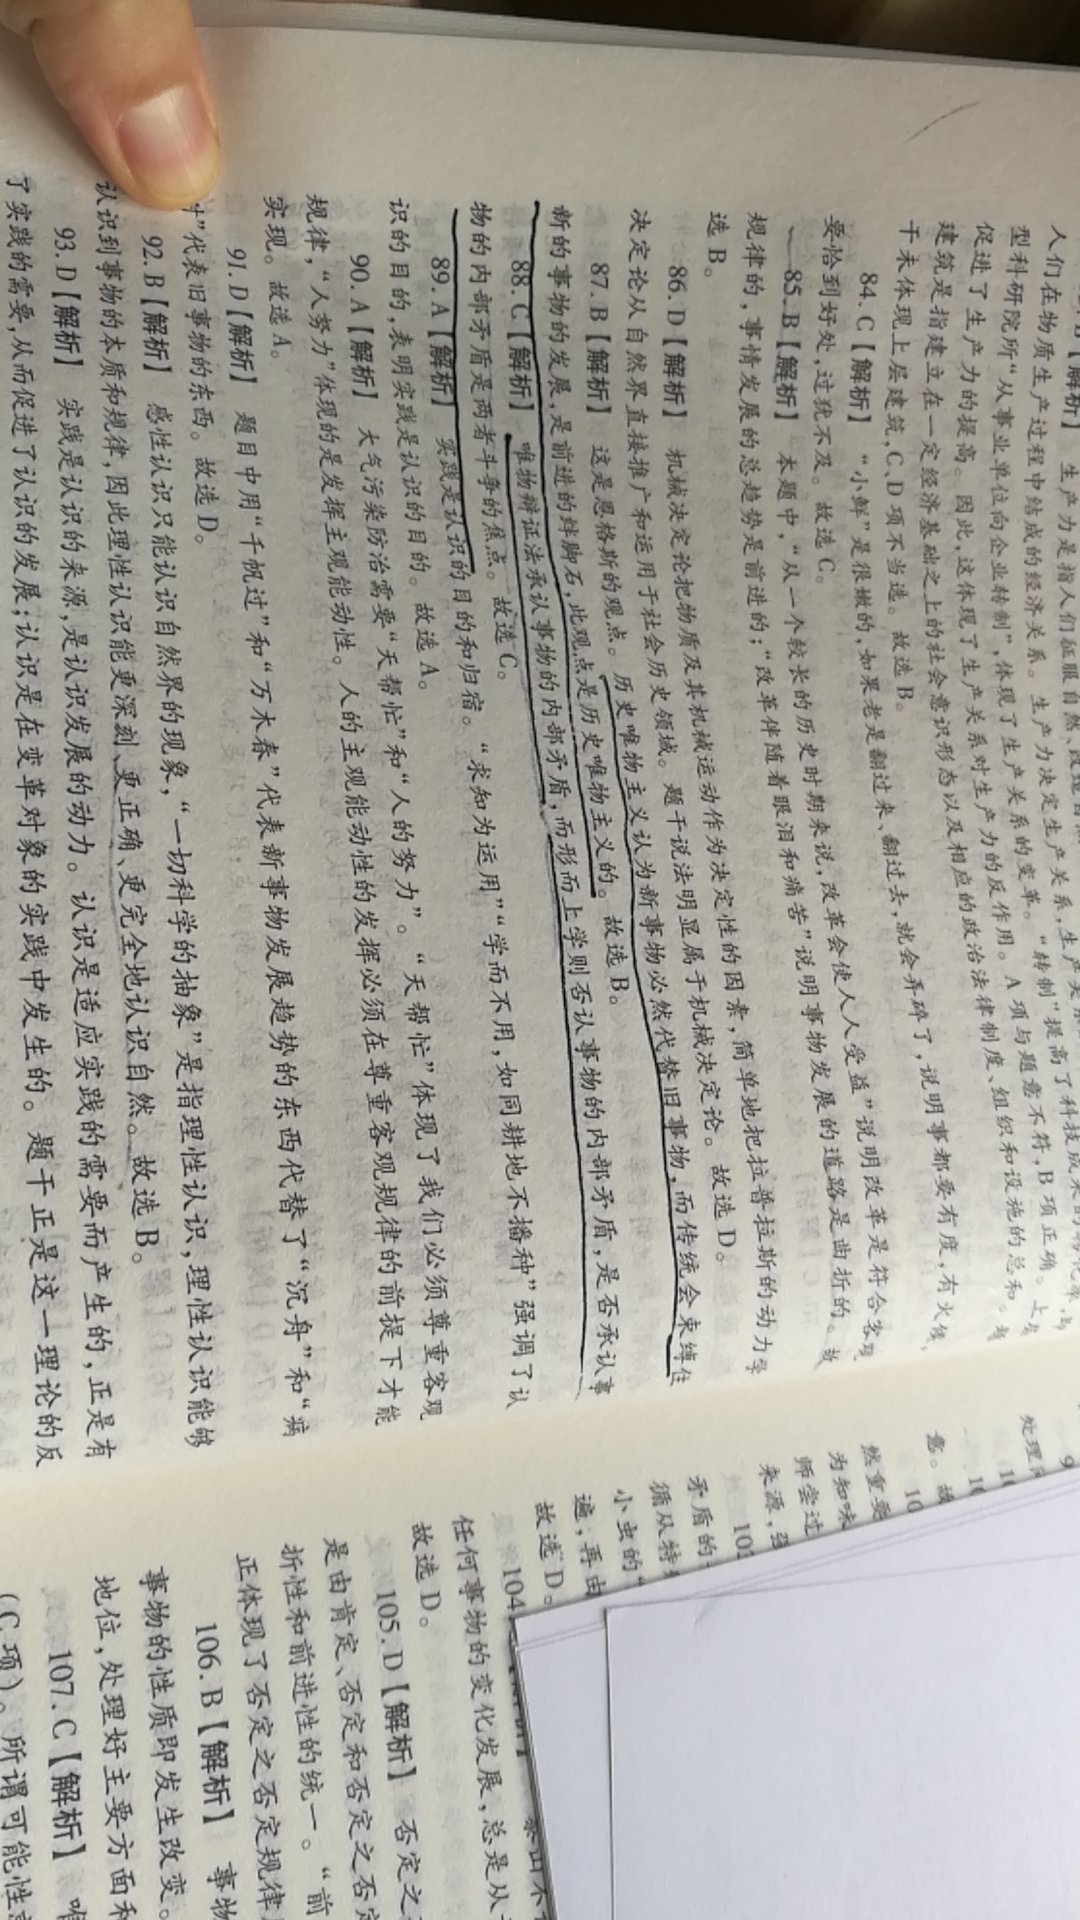 【解析】 生产力是指人们征服自然、改造自
人们在物质生产过程中结成的经济关系。生产力决定生产关系,生产关系
型科研院所“从事业单位向企业转制”,体现了生产关系的变革。“转制”提高了科技成果的转化率,
促进了生产力的提高。因此,这体现了生产关系对生产力的反作用。A项与题意不符,B项正确。上层
建筑是指建立在一定经济基础之上的社会意识形态以及相应的政治法律制度、组织和设施的总和。题
干未体现上层建筑,C、D项不当选。故选B。
84. C【解析】 “小鲜”是很嫩的,如果老是翻过来、翻过去,就会弄碎了,说明事都要有度,有火候,
要恰到好处,过犹不及。故选C。
85. B【解析】 本题中,“从一个较长的历史时期来说,改革会使人人受益”说明改革是符合客观
规律的,事情发展的总趋势是前进的;“改革伴随着眼泪和痛苦”说明事物发展的道路是曲折的。故
选B。
86. D【解析】 机械决定论把物质及其机械运动作为决定性的因素,简单地把拉普拉斯的动力学
决定论从自然界直接推广和运用于社会历史领域。题干说法明显属于机械决定论。故选D。
87. B【解析】 这是恩格斯的观点。历史唯物主义认为新事物必然代替旧事物,而传统会束缚住
新的事物的发展,是前进的绊脚石,此观点是历史唯物主义的。故选B。
88. C【解析】 唯物辩证法承认事物的内部矛盾,而形而上学则否认事物的内部矛盾,是否承认事
物的内部矛盾是两者斗争的焦点。故选C。
89. A【解析】 实践是认识的目的和归宿。“求知为运用”“学而不用,如同耕地不播种”强调了认
识的目的,表明实践是认识的目的。故选A。
90. A【解析】 大气污染防治需要“天帮忙”和“人的努力”。“天帮忙”体现了我们必须尊重客观
规律,“人努力”体现的是发挥主观能动性。人的主观能动性的发挥必须在尊重客观规律的前提下才能
实现。故选A。
91. D【解析】 题目中用“千帆过”和“万木春”代表新事物发展趋势的东西代替了“沉舟”和“病
”代表旧事物的东西。故选D。
92. B【解析】 感性认识只能认识自然界的现象,“一切科学的抽象”是指理性认识,理性认识能够
认识到事物的本质和规律,因此理性认识能更深刻、更正确、更完全地认识自然。故选B。
93. D【解析】 实践是认识的来源,是认识发展的动力。认识是适应实践的需要而产生的,正是有
了实践的需要,从而促进了认识的发展;认识是在变革对象的实践中发生的。题干正是这一理论的反
处理
意。故
然重要
为知味
师尝过
来源,强
矛盾的
循从特
小虫的
遍,再由
故选D。
104
任何事物的变化发展,总是从
故选D。
105. D【解析】 否定之
是由肯定、否定和否定之否定
折性和前进性的统一。“前
正体现了否定之否定规律
106. B【解析】 事物
事物的性质即发生改变。
地位,处理好主要方面和
107. C【解析】 唯
(C项)。所谓可能性